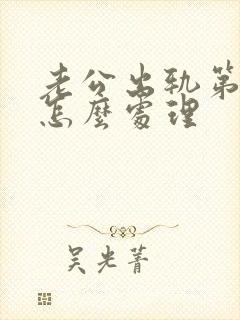 老公出轨第
怎麼處理
吴光菁